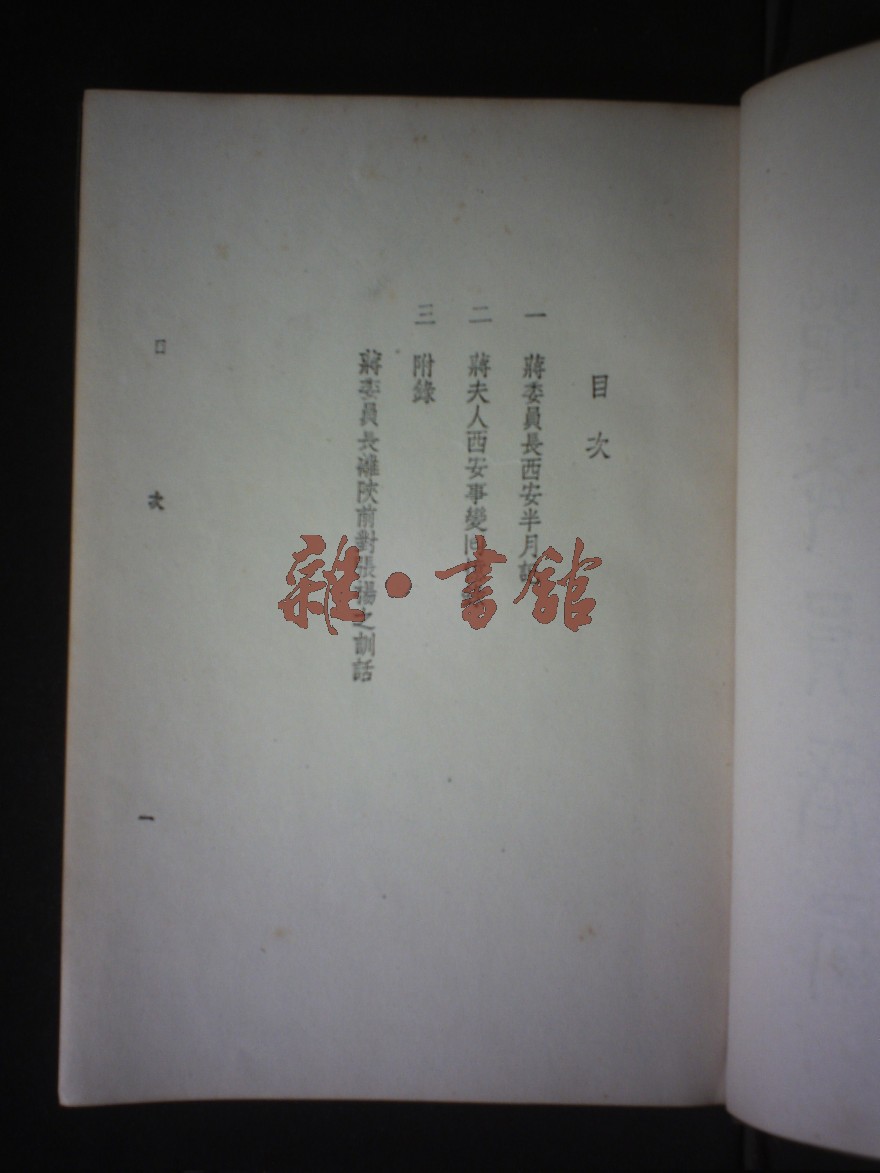 目次
一 蔣委員長西安半月記
二 蔣夫人西安事變回憶錄
三 附錄
蔣委員長離陝前對張楊之訓話
目次
一
雜·書館